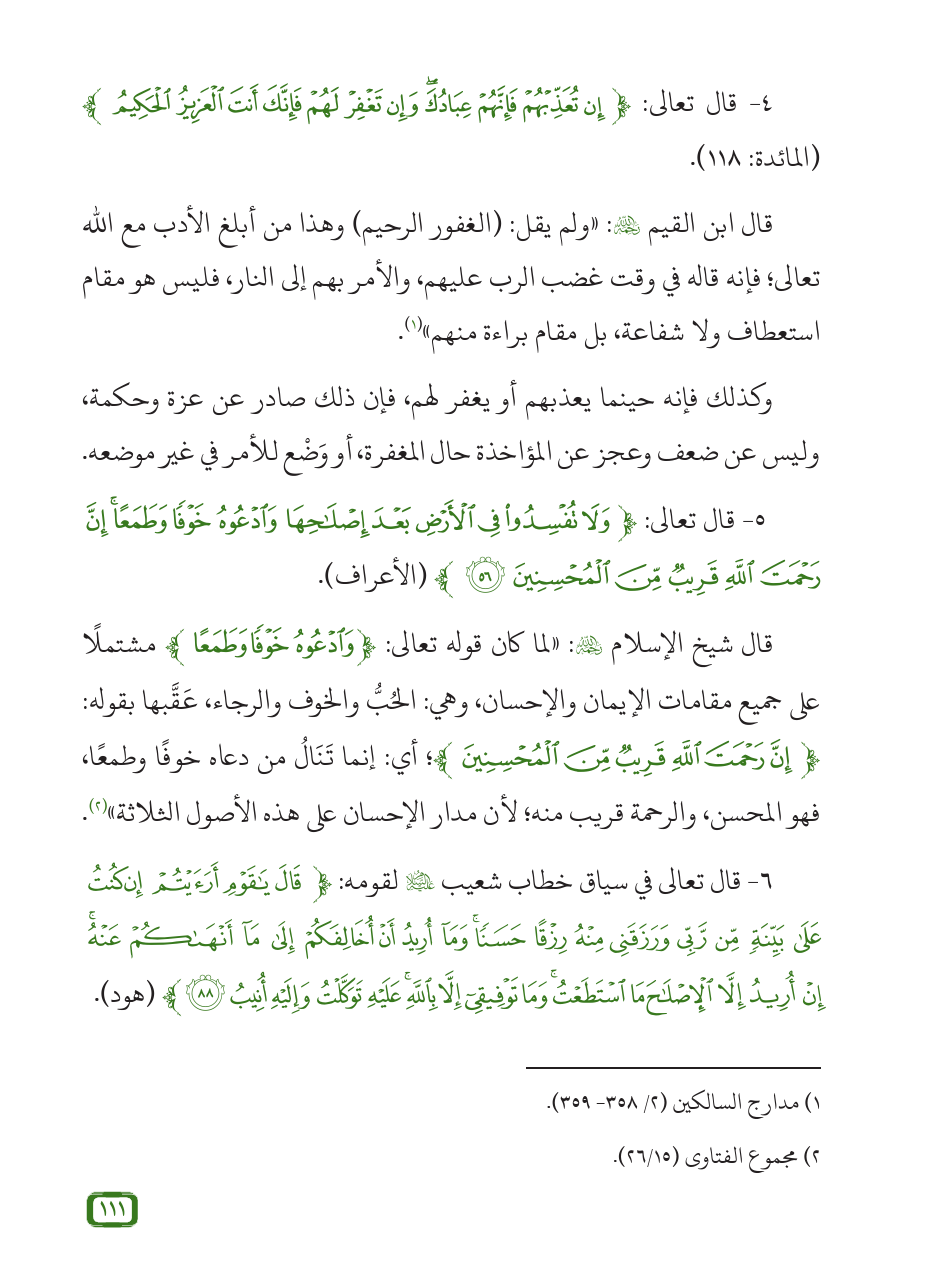 ٤- قال تعالى: ﴿ إِن تُعَذِّبْهُمْ فَإِنَّهُمْ عِبَادُكَ ۖ وَإِن تَغْفِرْ لَهُمْ فَإِنَّكَ أَنتَ ٱلْعَزِيزُ ٱلْحَكِيمُ ﴾
(المائدة: ١١٨).
قال ابن القيم رحمه الله: «ولم يقل: (الغفور الرحيم) وهذا من أبلغ الأدب مع الله
تعالى؛ فإنه قاله في وقت غضب الرب عليهم، والأمر بهم إلى النار، فليس هو مقام
استعطاف ولا شفاعة، بل مقام براءة منهم»(١).
وكذلك فإنه حينما يعذبهم أو يغفر لهم، فإن ذلك صادر عن عزة وحكمة،
وليس عن ضعف وعجز عن المؤاخذة حال المغفرة، أو وَضْع للأمر في غير موضعه.
٥- قال تعالى: ﴿ وَلَا تُفْسِدُوا۟ فِى ٱلْأَرْضِ بَعْدَ إِصْلَـٰحِهَا وَٱدْعُوهُ خَوْفًا وَطَمَعًا ۚ إِنَّ
رَحْمَتَ ٱللَّهِ قَرِيبٌ مِّنَ ٱلْمُحْسِنِينَ ٥٦ ﴾ (الأعراف).
قال شيخ الإسلام رحمه الله: «لما كان قوله تعالى: ﴿ وَٱدْعُوهُ خَوْفًا وَطَمَعًا ﴾ مشتملًا
على جميع مقامات الإيمان والإحسان، وهي: الحُبُّ والخوف والرجاء، عَقَّبها بقوله:
﴿ إِنَّ رَحْمَتَ ٱللَّهِ قَرِيبٌ مِّنَ ٱلْمُحْسِنِينَ ﴾؛ أي: إنما تَنَالُ من دعاه خوفًا وطمعًا،
فهو المحسن، والرحمة قريب منه؛ لأن مدار الإحسان على هذه الأصول الثلاثة»(٢).
٦- قال تعالى في سياق خطاب شعيب عليه السلام لقومه: ﴿ قَالَ يَـٰقَوْمِ أَرَءَيْتُمْ إِن كُنتُ
عَلَىٰ بَيِّنَةٍ مِّن رَّبِّى وَرَزَقَنِى مِنْهُ رِزْقًا حَسَنًا ۚ وَمَآ أُرِيدُ أَنْ أُخَالِفَكُمْ إِلَىٰ مَآ أَنْهَىٰكُمْ عَنْهُ ۚ
إِنْ أُرِيدُ إِلَّا ٱلْإِصْلَـٰحَ مَا ٱسْتَطَعْتُ ۚ وَمَا تَوْفِيقِىٓ إِلَّا بِٱللَّهِ ۚ عَلَيْهِ تَوَكَّلْتُ وَإِلَيْهِ أُنِيبُ ٨٨ ﴾ (هود).
١) مدارج السالكين (٢/ ٣٥٨- ٣٥٩).
٢) مجموع الفتاوى (٢٦/١٥).
١١١